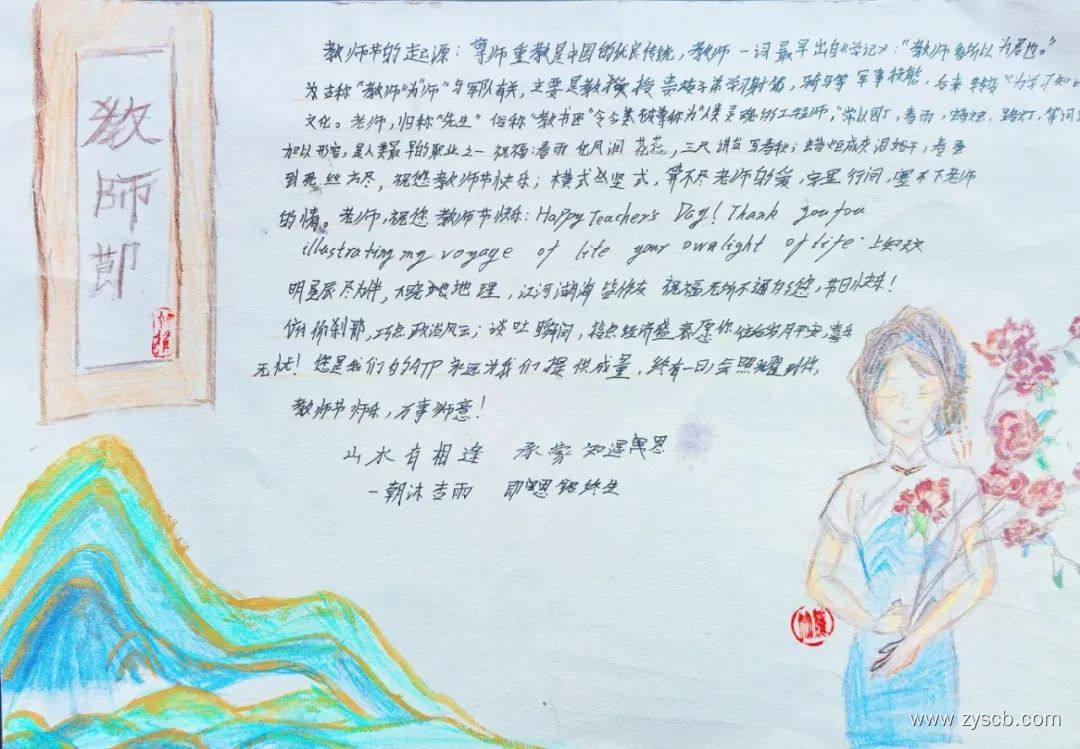 教師節
教师节的起源：尊师重教是中国的优良传统，教师一词最早出自《学记》："教师者所以为君也。"
为古称"教师"为"师"与军队有关，主要是教授贵族子弟学习射箭，骑马等军事技能，后来转
文化。老师，旧称"先生"俗称"教书匠"今被尊称为"人类灵魂的工程师"，常以园丁，春雨，蜡烛，路灯，等词
加以形容，是人类最早的职业之一 祝福：春雨化风润花蕊，三尺讲台写春秋；蜡炬成灰泪始干，春蚕
到死丝方尽，祝您教师节快乐；横式竖式，算不尽老师的爱，字里行间，写不下老师
的情。老师，祝您教师节快乐：Happy Teacher's Day! Thank you for
illustrating my voyage of life your own light of life. 上知
明星辰尽为伴，下晓地理，江河湖海皆作友 祝福无所不通的您，节日快乐！
俯仰刹那，巧点政治风云；谈吐瞬间，指点经济盛衰愿你位后岁月平安，喜乐
无忧！您是我们的ATP永远为我们提供成量，终有一日会照耀到你，
教师节师乐，万事师意！
山水有相逢 承蒙知遇恩
一朝沐杏雨 即恩铭终生
www.zyscb.com